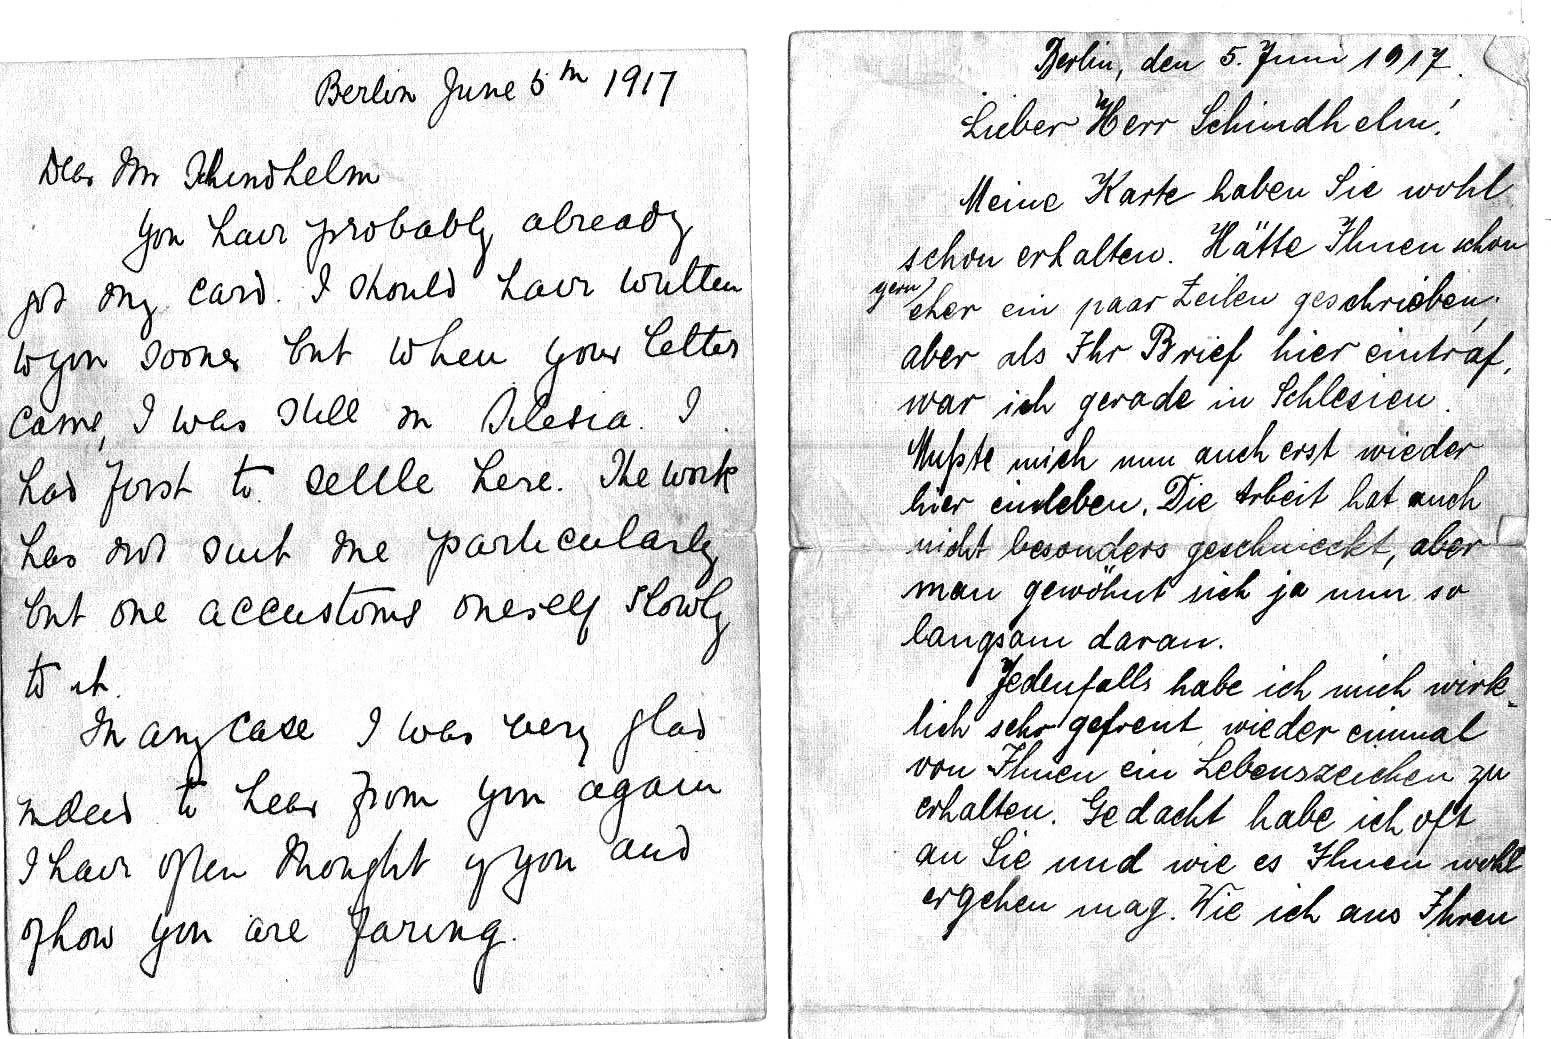 Berlin June 5th 1917
Dear Mr Schindhelm
You have probably already
got my card. I should have written
to you sooner but when your letter
came, I was still in Silesia. I
had first to settle here. The work
has not suit me particularly
but one accustoms oneself slowly
to it.
In any case I was very glad
indeed to hear from you again
I have often thought of you and
of how you are faring.
Berlin, den 5. Juni 1917.
Lieber Herr Schindhelm!
Meine Karte haben Sie wohl
schon erhalten. Hätte Ihnen schon
gern
eher ein paar Zeilen geschrieben,
aber als Ihr Brief hier eintraf,
war ich gerade in Schlesien.
Mußte mich nun auch erst wieder
hier einleben. Die Arbeit hat auch
nicht besonders geschmeckt, aber
man gewöhnt sich ja nun so
langsam daran.
Jedenfalls habe ich mich wirk-
lich sehr gefreut wieder einmal
von Ihnen ein Lebenszeichen zu
erhalten. Gedacht habe ich oft
an Sie und wie es Ihnen wohl
ergehen mag. Wie ich aus Ihren